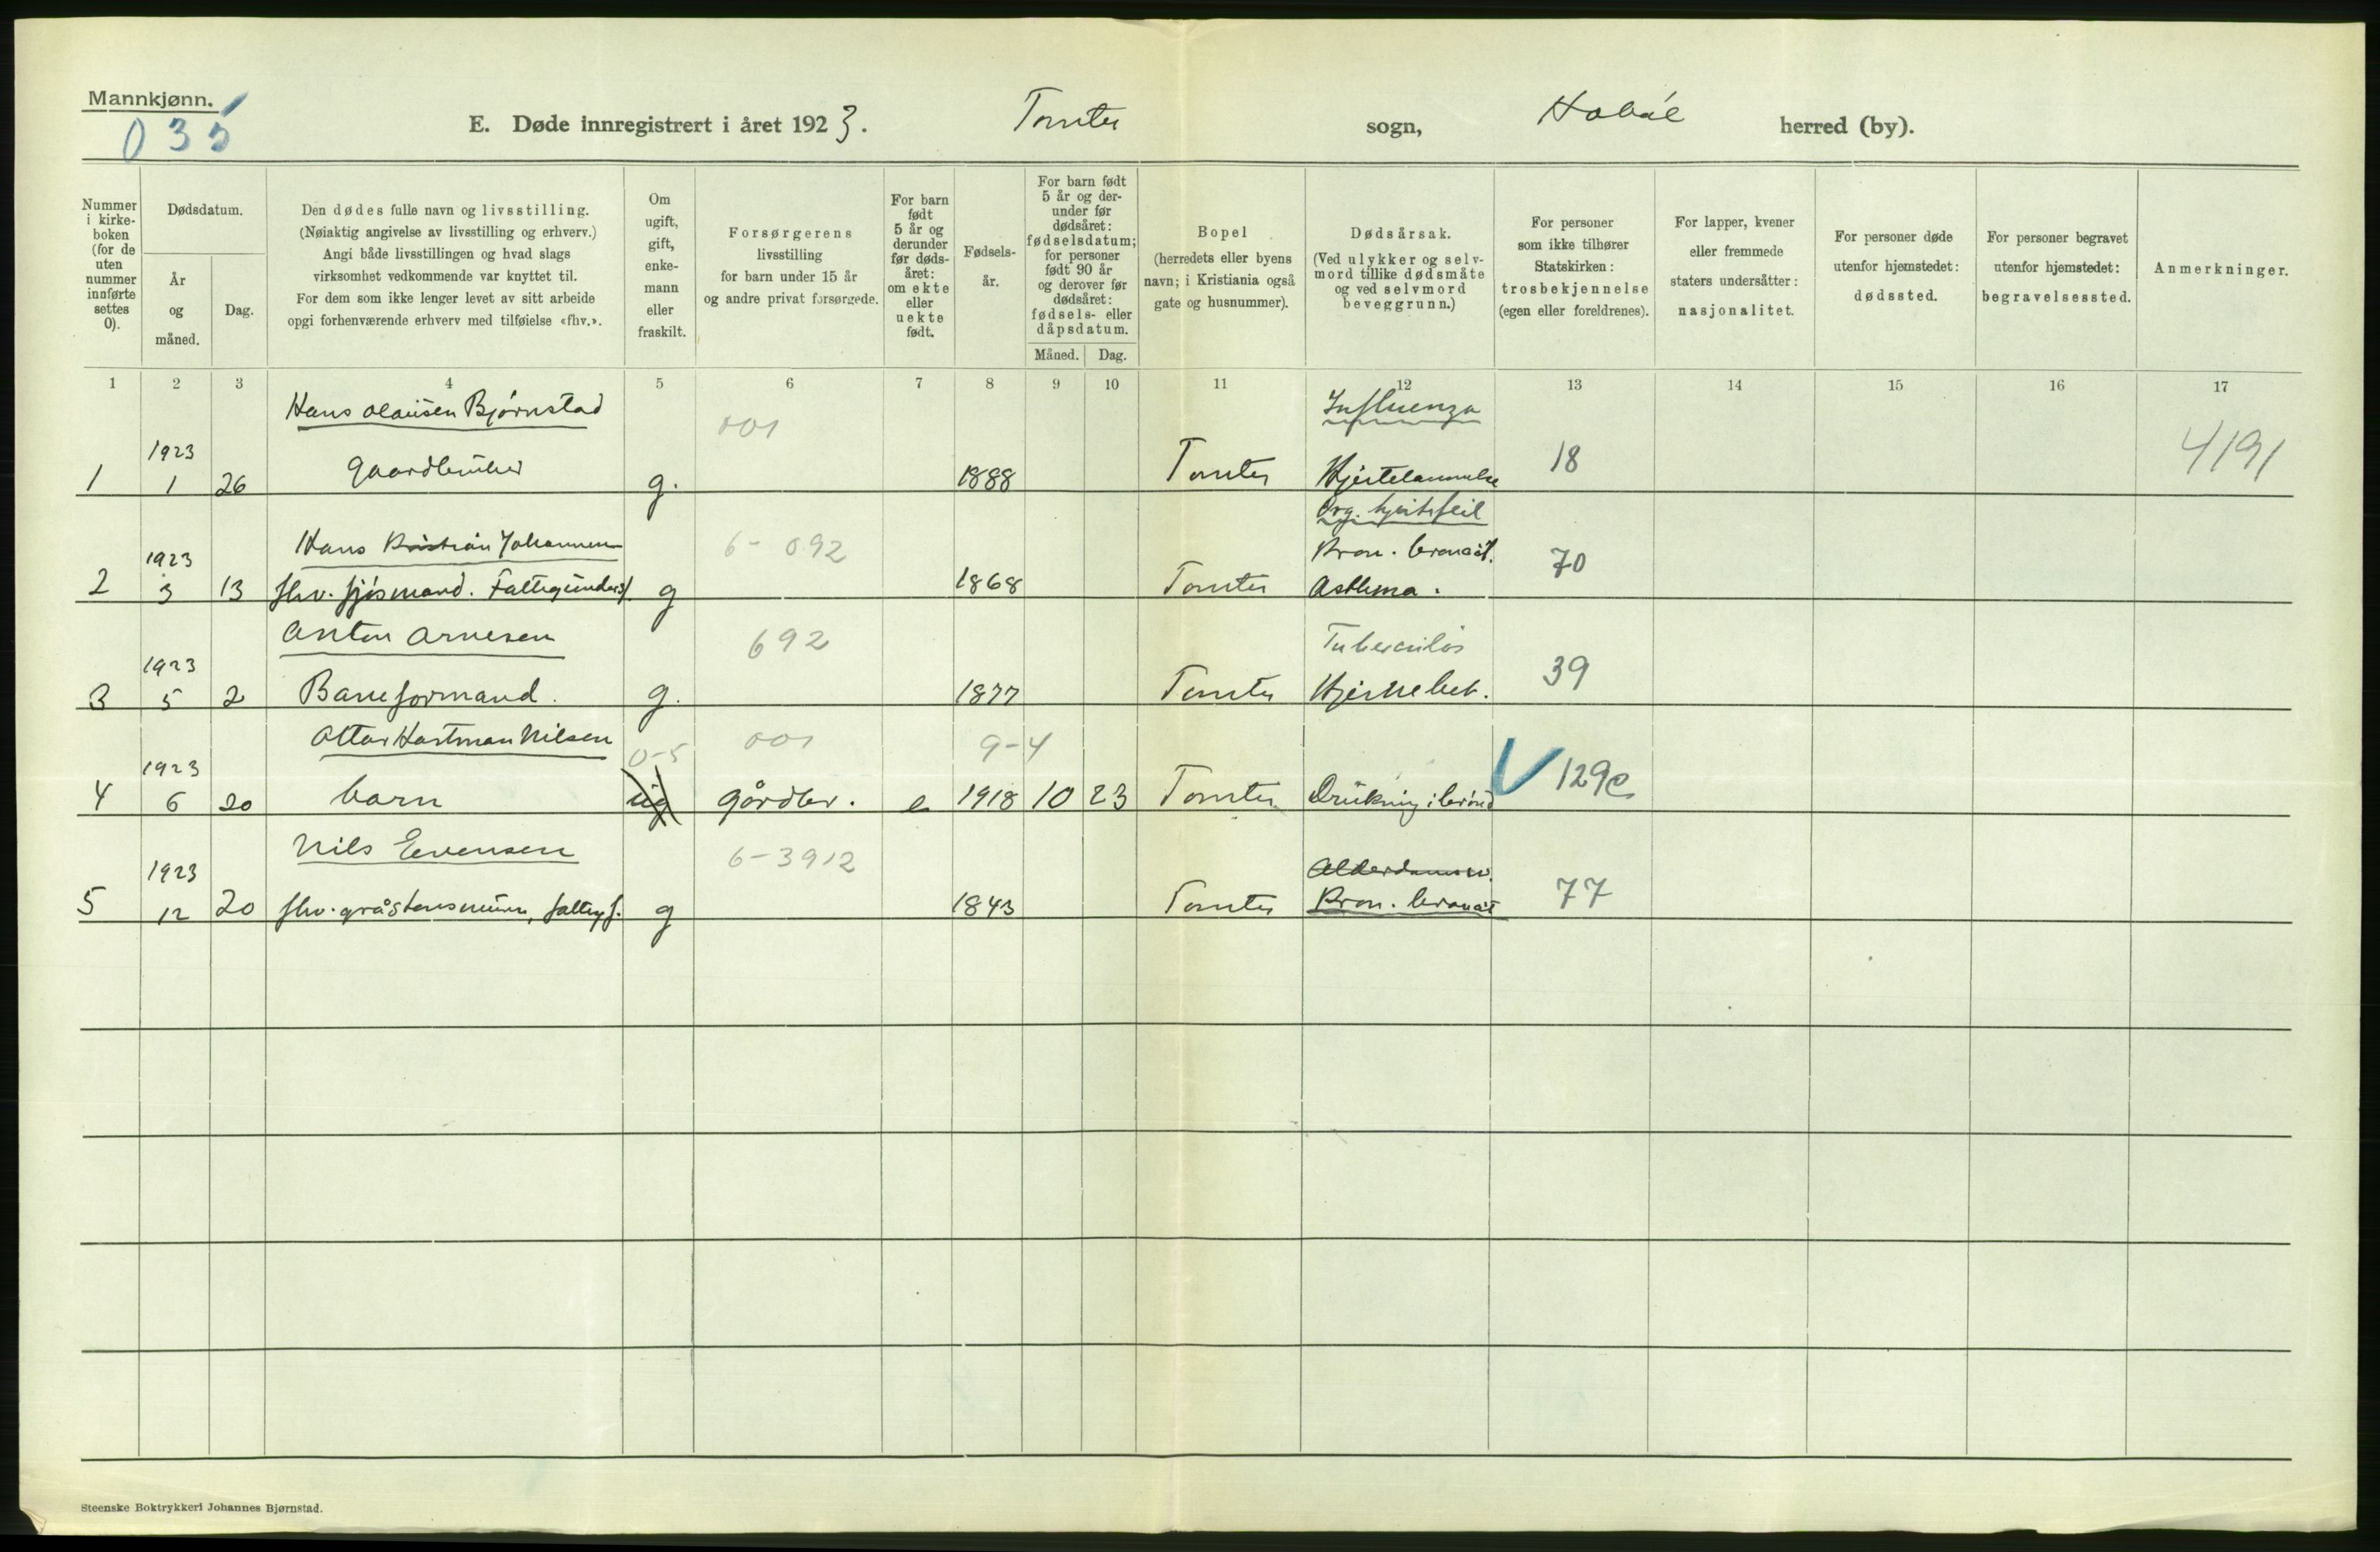 Mannkjønn.
035
E. Døde innregistrert i året 1923. Tomter sogn, Hobøl herred (by).
Nummer i kirke- boken (for de uten nummer innførte settes 0).
Dødsdatum.
År og måned.
Dag.
Den dødes fulle navn og livsstilling.
(Nøiaktig angivelse av livsstilling og erhverv.)
Angi både livsstillingen og hvad slags
virksomhet vedkommende var knyttet til.
For dem som ikke lenger levet av sitt arbeide
opgi forhenværende erhverv med tilføielse «fhv.».
Om ugift, gift, enke- mann eller fraskilt.
Forsørgerens
livsstilling
for barn under 15 år
og andre privat forsørgede.
For barn født 5 år og derunder før døds- året: om ekte eller uekte født.
Fødsels- år.
For barn født 5 år og der- under før dødsåret: fødselsdatum; for personer født 90 år og derover før dødsåret: fødsels- eller dåpsdatum.
Måned. Dag.
Bopel
(herredets eller byens
navn; i Kristiania også
gate og husnummer).
Dødsårsak.
(Ved ulykker og selv-
mord tillike dødsmåte
og ved selvmord
beveggrunn.)
For personer
som ikke tilhører
Statskirken:
trosbekjennelse
(egen eller foreldrenes).
For lapper, kvener
eller fremmede
staters undersåtter:
nasjonalitet.
For personer døde
utenfor hjemstedet:
dødssted.
For personer begravet
utenfor hjemstedet:
begravelsessted.
Anmerkninger.
1 2 3 4 5 6 7 8 9 10 11 12 13 14 15 16 17
Hans Olausen Bjørnstad 001 Influenza
1923 18 4191
1 1 26 Gaardbruker g. 1888 Tomter Hjertelammelse
Org. hjertefeil
1923 Hans Kristian Johannesen 6-092 Kron. bronkit. 70
2 3 13 fhv. sjømand. Fattigunderst. g 1868 Tomter Asthma.
Anton Arnesen 692 Tuberculøs
1923 39
3 5 2 Baneformand. g. 1877 Tomter Hjernebet.
Ottar Hartman Nilsen 0-5 001 9-4
1923 V 129e
4 6 20 barn ug gårdbr. e 1918 10 23 Tomter Drukning i brønd
Nils Evensen 6-3912
1923 Alderdomssv. 77
5 12 20 fhv. gråstensmurer, fattigf. g 1843 Tomter Kron. bronkit
Steenske Boktrykkeri Johannes Bjørnstad.